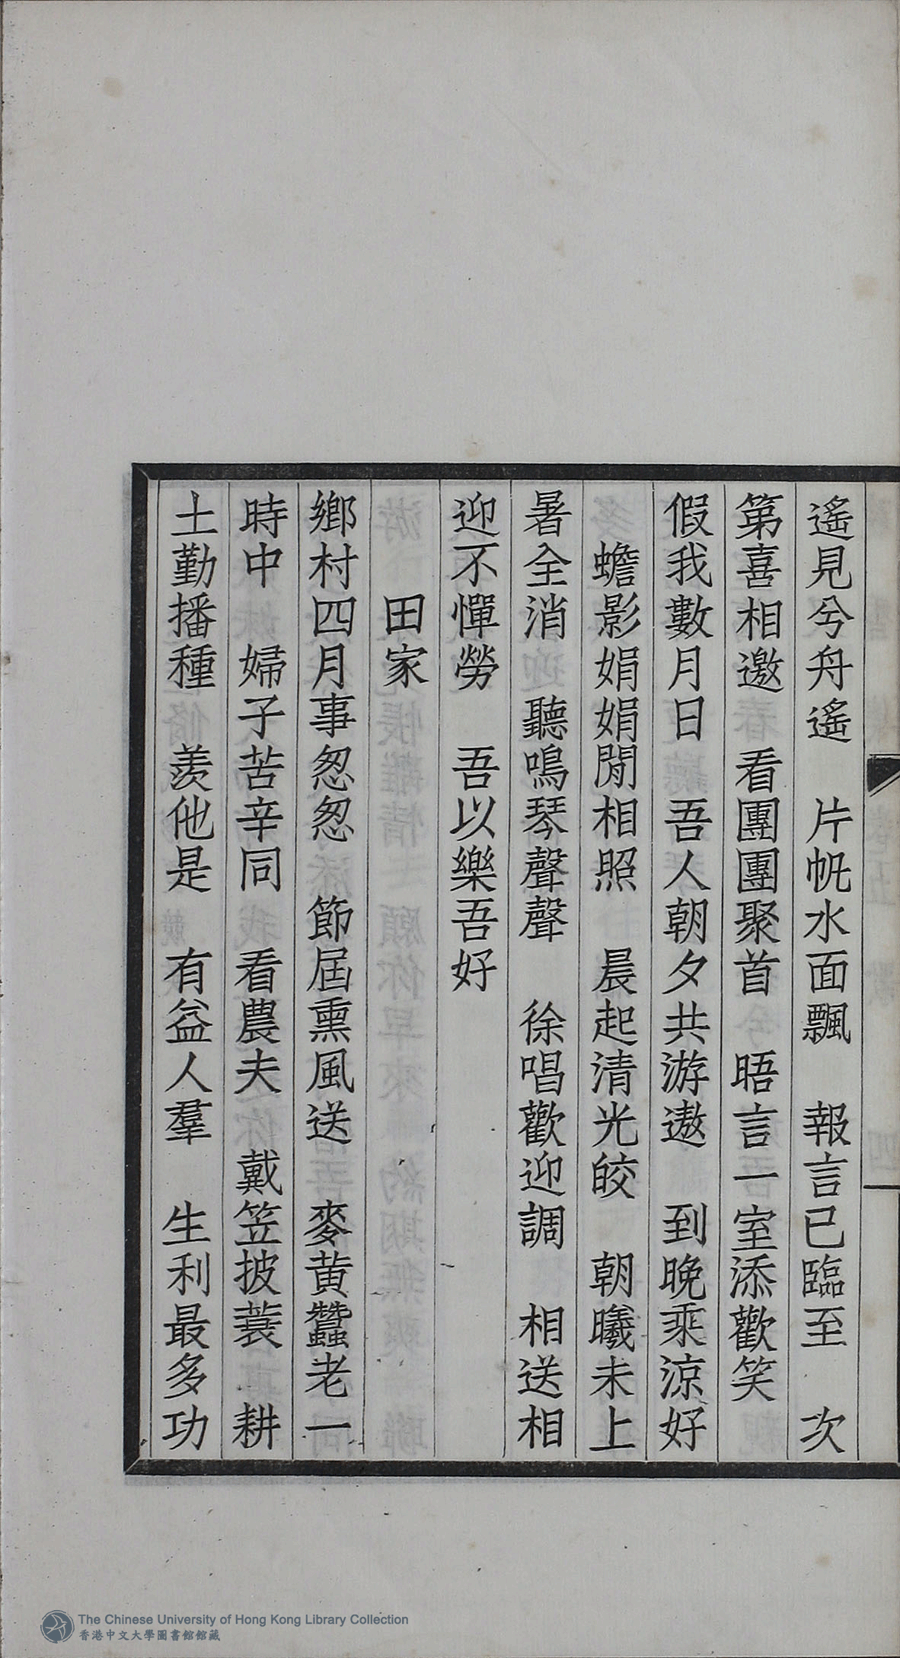 遙見兮舟遙　片帆水面飄　報言已臨至　次
第喜相邀　看團團聚首　晤言一室添歡笑
假我數月日　吾人朝夕共游遨　到晚乘涼好
蟾影娟娟閒相照　晨起清光皎　朝曦未上
暑全消　聽鳴琴聲聲　徐唱歡迎調　相送相
迎不憚勞　吾以樂吾好
田家
鄉村四月事怱怱　節屆熏風送　麥黃蠶老一
時中　婦子苦辛同　看農夫　戴笠披蓑　耕
土勤播種　羨他是　有益人羣　生利最多功
The Chinese University of Hong Kong Library Collection
香港中文大學圖書館館藏